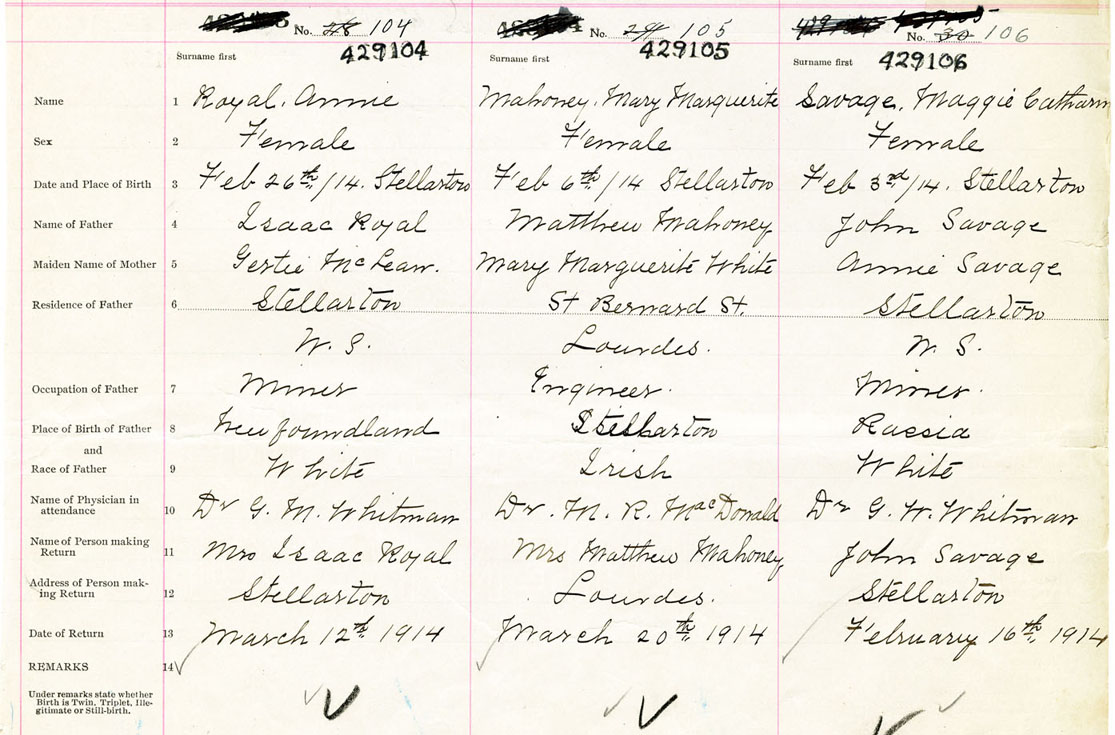 No. 28 104 No. 29 105 No. 30 106
Surname first 429104 Surname first 429105 Surname first 429106
Name 1 Royal, Annie Mahoney, Mary Marguerite Savage, Maggie Catharin
Sex 2 Female Female Female
Date and Place of Birth 3 Feb 26th/14. Stellarton Feb 6th/14 Stellarton Feb 3rd/14. Stellarton
Name of Father 4 Isaac Royal Matthew Mahoney John Savage
Maiden Name of Mother 5 Gertie McLean. Mary Marguerite White Annie Savage
Residence of Father 6 Stellarton St Bernard St. Stellarton
N. S. Lourdes. N. S.
Occupation of Father 7 Miner Engineer. Miner.
Place of Birth of Father 8 Newfoundland Stellarton Russia
and
Race of Father 9 White Irish White
Name of Physician in
attendance 10 Dr G. M. Whitman Dr. M. R. MacDonald Dr G. W. Whitman
Name of Person making
Return 11 Mrs Isaac Royal Mrs Matthew Mahoney John Savage
Address of Person mak-
ing Return 12 Stellarton Lourdes. Stellarton
Date of Return 13 March 12th 1914 March 20th 1914 February 16th 1914
REMARKS 14
Under remarks state whether
Birth is Twin, Triplet, Ille-
gitimate or Still-birth.